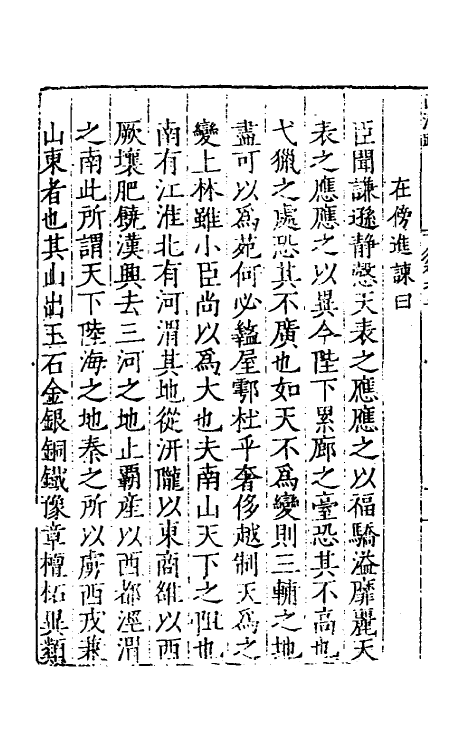 在傍進諫曰
臣聞謙遜静慤天表之應應之以福驕溢靡麗天
表之應應之以異今陛下累廊之臺恐其不高也
弋獵之處恐其不廣也如天不為變則三輔之地
盡可以為苑何必盩屋鄠杜乎奢侈越制天為之
變上林雖小臣尚以為大也夫南山天下之阻也
南有江淮北有河渭其地從汧隴以東商雒以西
厥壤肥饒漢興去三河之地止霸產以西都涇渭
之南此所謂天下陸海之地秦之所以虜西戎兼
山東者也其山出玉石金銀銅鐵豫章檀柘異類